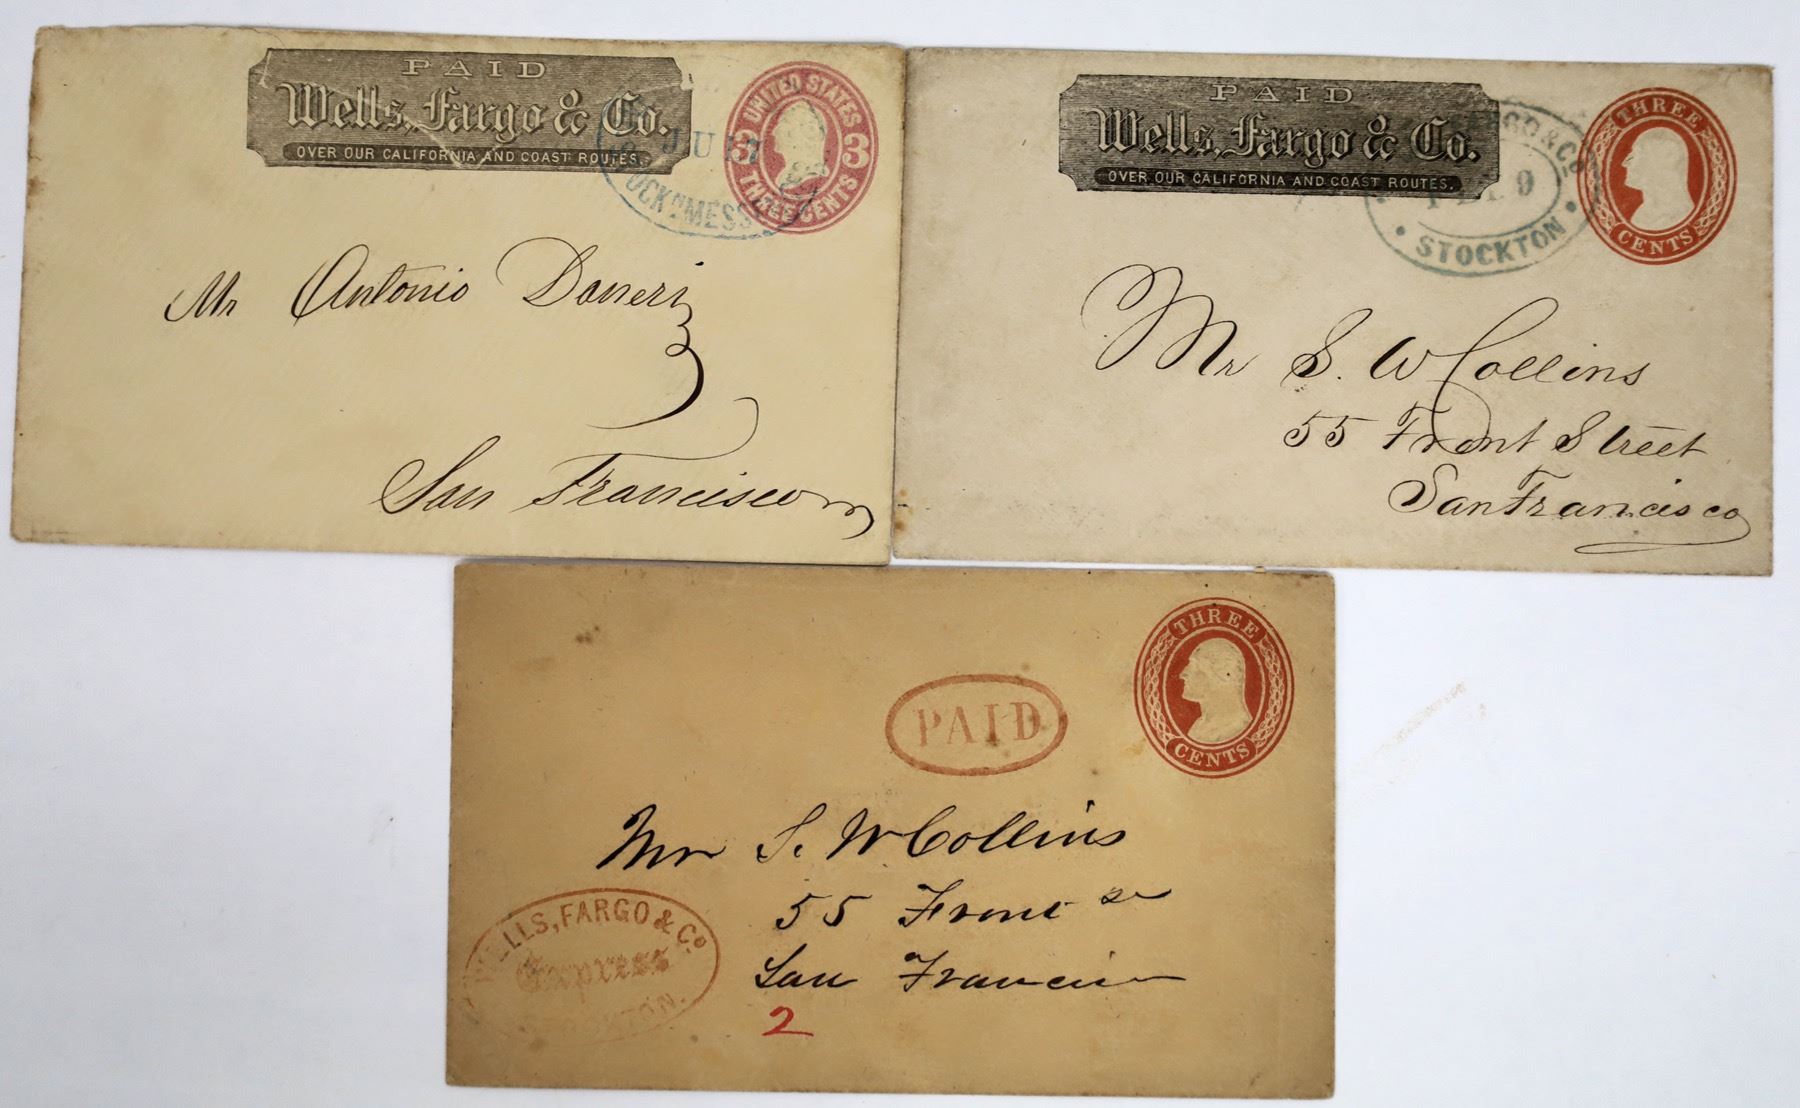 PAID
Wells, Fargo & Co.
OVER OUR CALIFORNIA AND COAST ROUTES.
UNITED STATES
3 3
THREE CENTS
JUL 7
STOCKN MESSR
Mr Antonio Daneri
San Francisco
PAID
Wells, Fargo & Co.
OVER OUR CALIFORNIA AND COAST ROUTES.
FARGO & Co
9
STOCKTON
THREE
CENTS
Mr S. W Collins
55 Front Street
San Francisco
THREE
CENTS
PAID
Mr S. W Collins
55 Front St
San Francisco
2
WELLS, FARGO & Co
Express
STOCKTON.